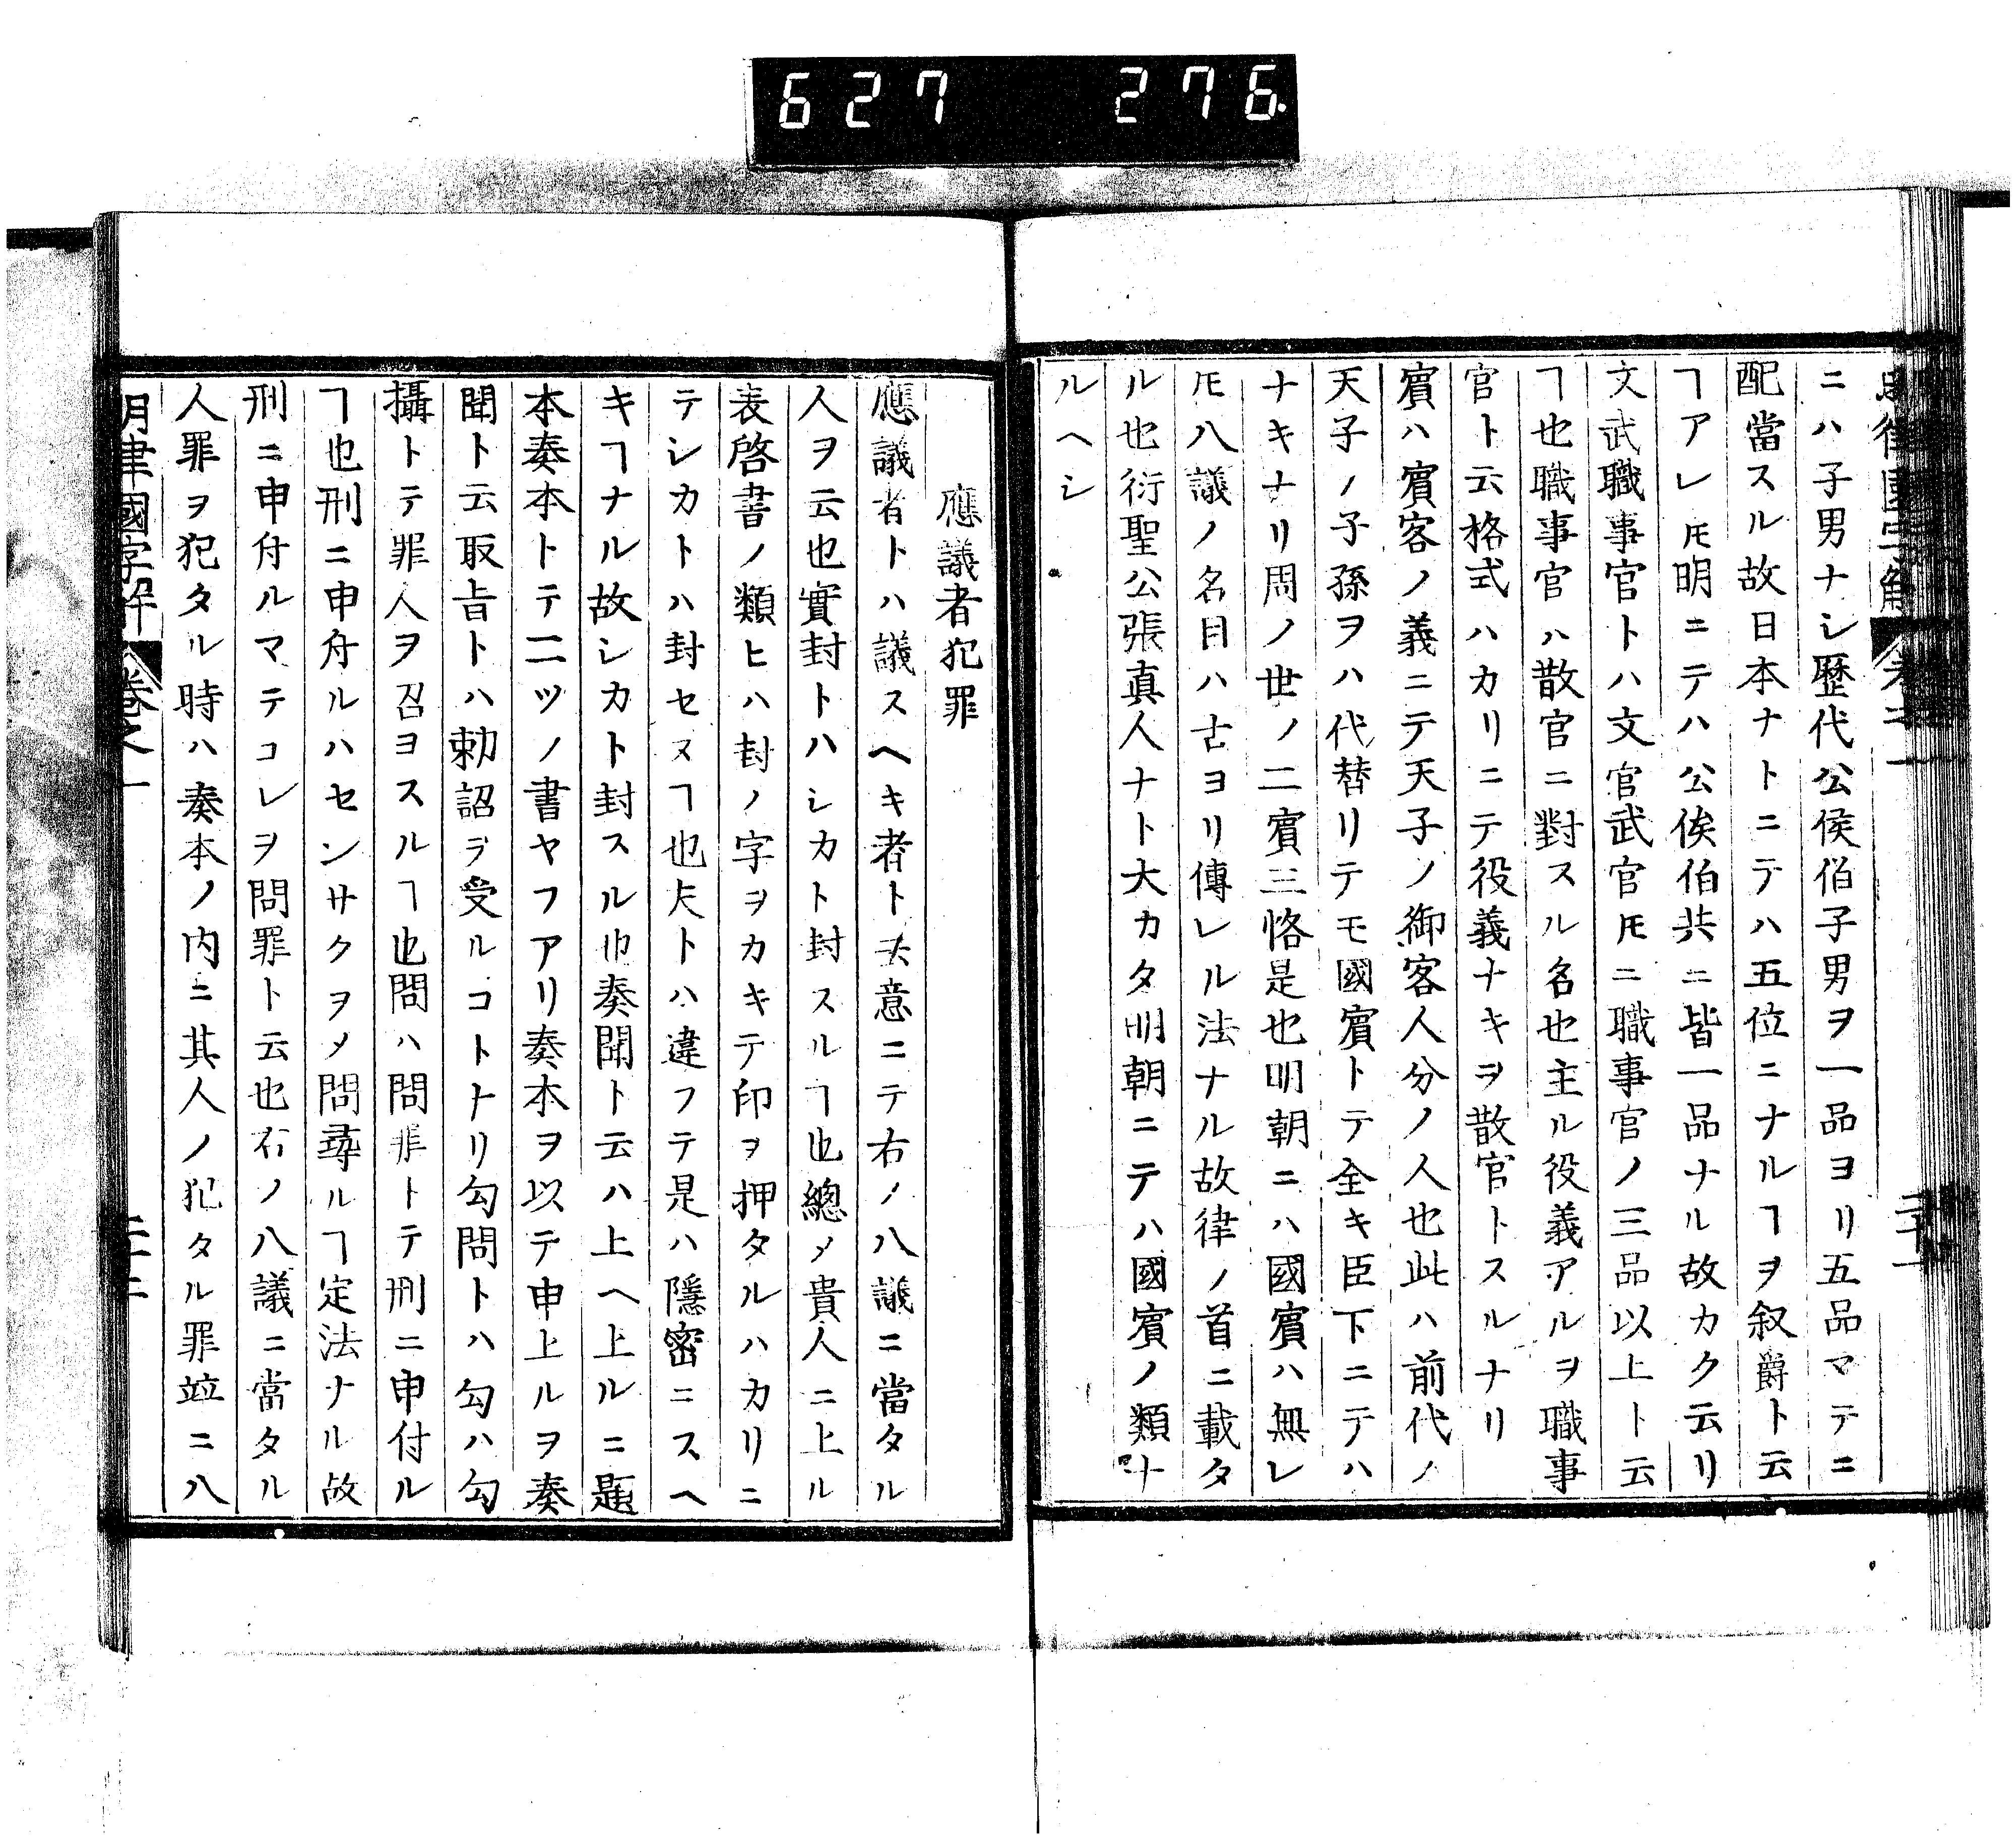 627 276
ニハ子男ナシ歴代公侯伯子男ヲ一品ヨリ五品マテニ
配當スル故日本ナトニテハ五位ニナルヿヲ叙爵ト云
ヿアレ𪜈明ニテハ公侯伯共ニ皆一品ナル故カク云リ
文武職事官トハ文官武官𪜈ニ職事官ノ三品以上ト云
ヿ也職事官ハ散官ニ對スル名也主ル役義アルヲ職事
官ト云格式ハカリニテ役義ナキヲ散官トスルナリ
賓ハ賓客ノ義ニテ天子ノ御客人分ノ人也此ハ前代ノ
天子ノ子孫ヲハ代替リテモ國賓トテ全キ臣下ニテハ
ナキナリ周ノ世ノ二賓三恪是也明朝ニハ國賓ハ無レ
𪜈八議ノ名目ハ古ヨリ傳レル法ナル故律ノ首ニ載タ
ル也衍聖公張真人ナト大カタ明朝ニテハ國賓ノ類ナ
ルヘシ
應議者犯罪
應議者トハ議スヘキ者ト云意ニテ右ノ八議ニ當タル
人ヲ云也實封トハシカト封スルヿ也總メ貴人ニ上ル
表啓書ノ類ヒハ封ノ字ヲカキテ印ヲ押タルハカリニ
テシカトハ封セヌヿ也夫トハ違フテ是ハ隱密ニスヘ
キヿナル故シカト封スル也奏聞ト云ハ上ヘ上ルニ題
本奏本トテ二ツノ書ヤフアリ奏本ヲ以テ申上ルヲ奏
聞ト云取旨トハ勅詔ヲ受ルコトナリ勾問トハ勾ハ勾
攝トテ罪人ヲ召ヨスルヿ也問ハ問罪トテ刑ニ申付ル
ヿ也刑ニ申付ルハセンサクヲメ問尋ルヿ定法ナル故
刑ニ申付ルマテコレヲ問罪ト云也右ノ八議ニ當タル
人罪ヲ犯タル時ハ奏本ノ内ニ其人ノ犯タル罪竝ニ八
明律國字解 卷之一 二十二